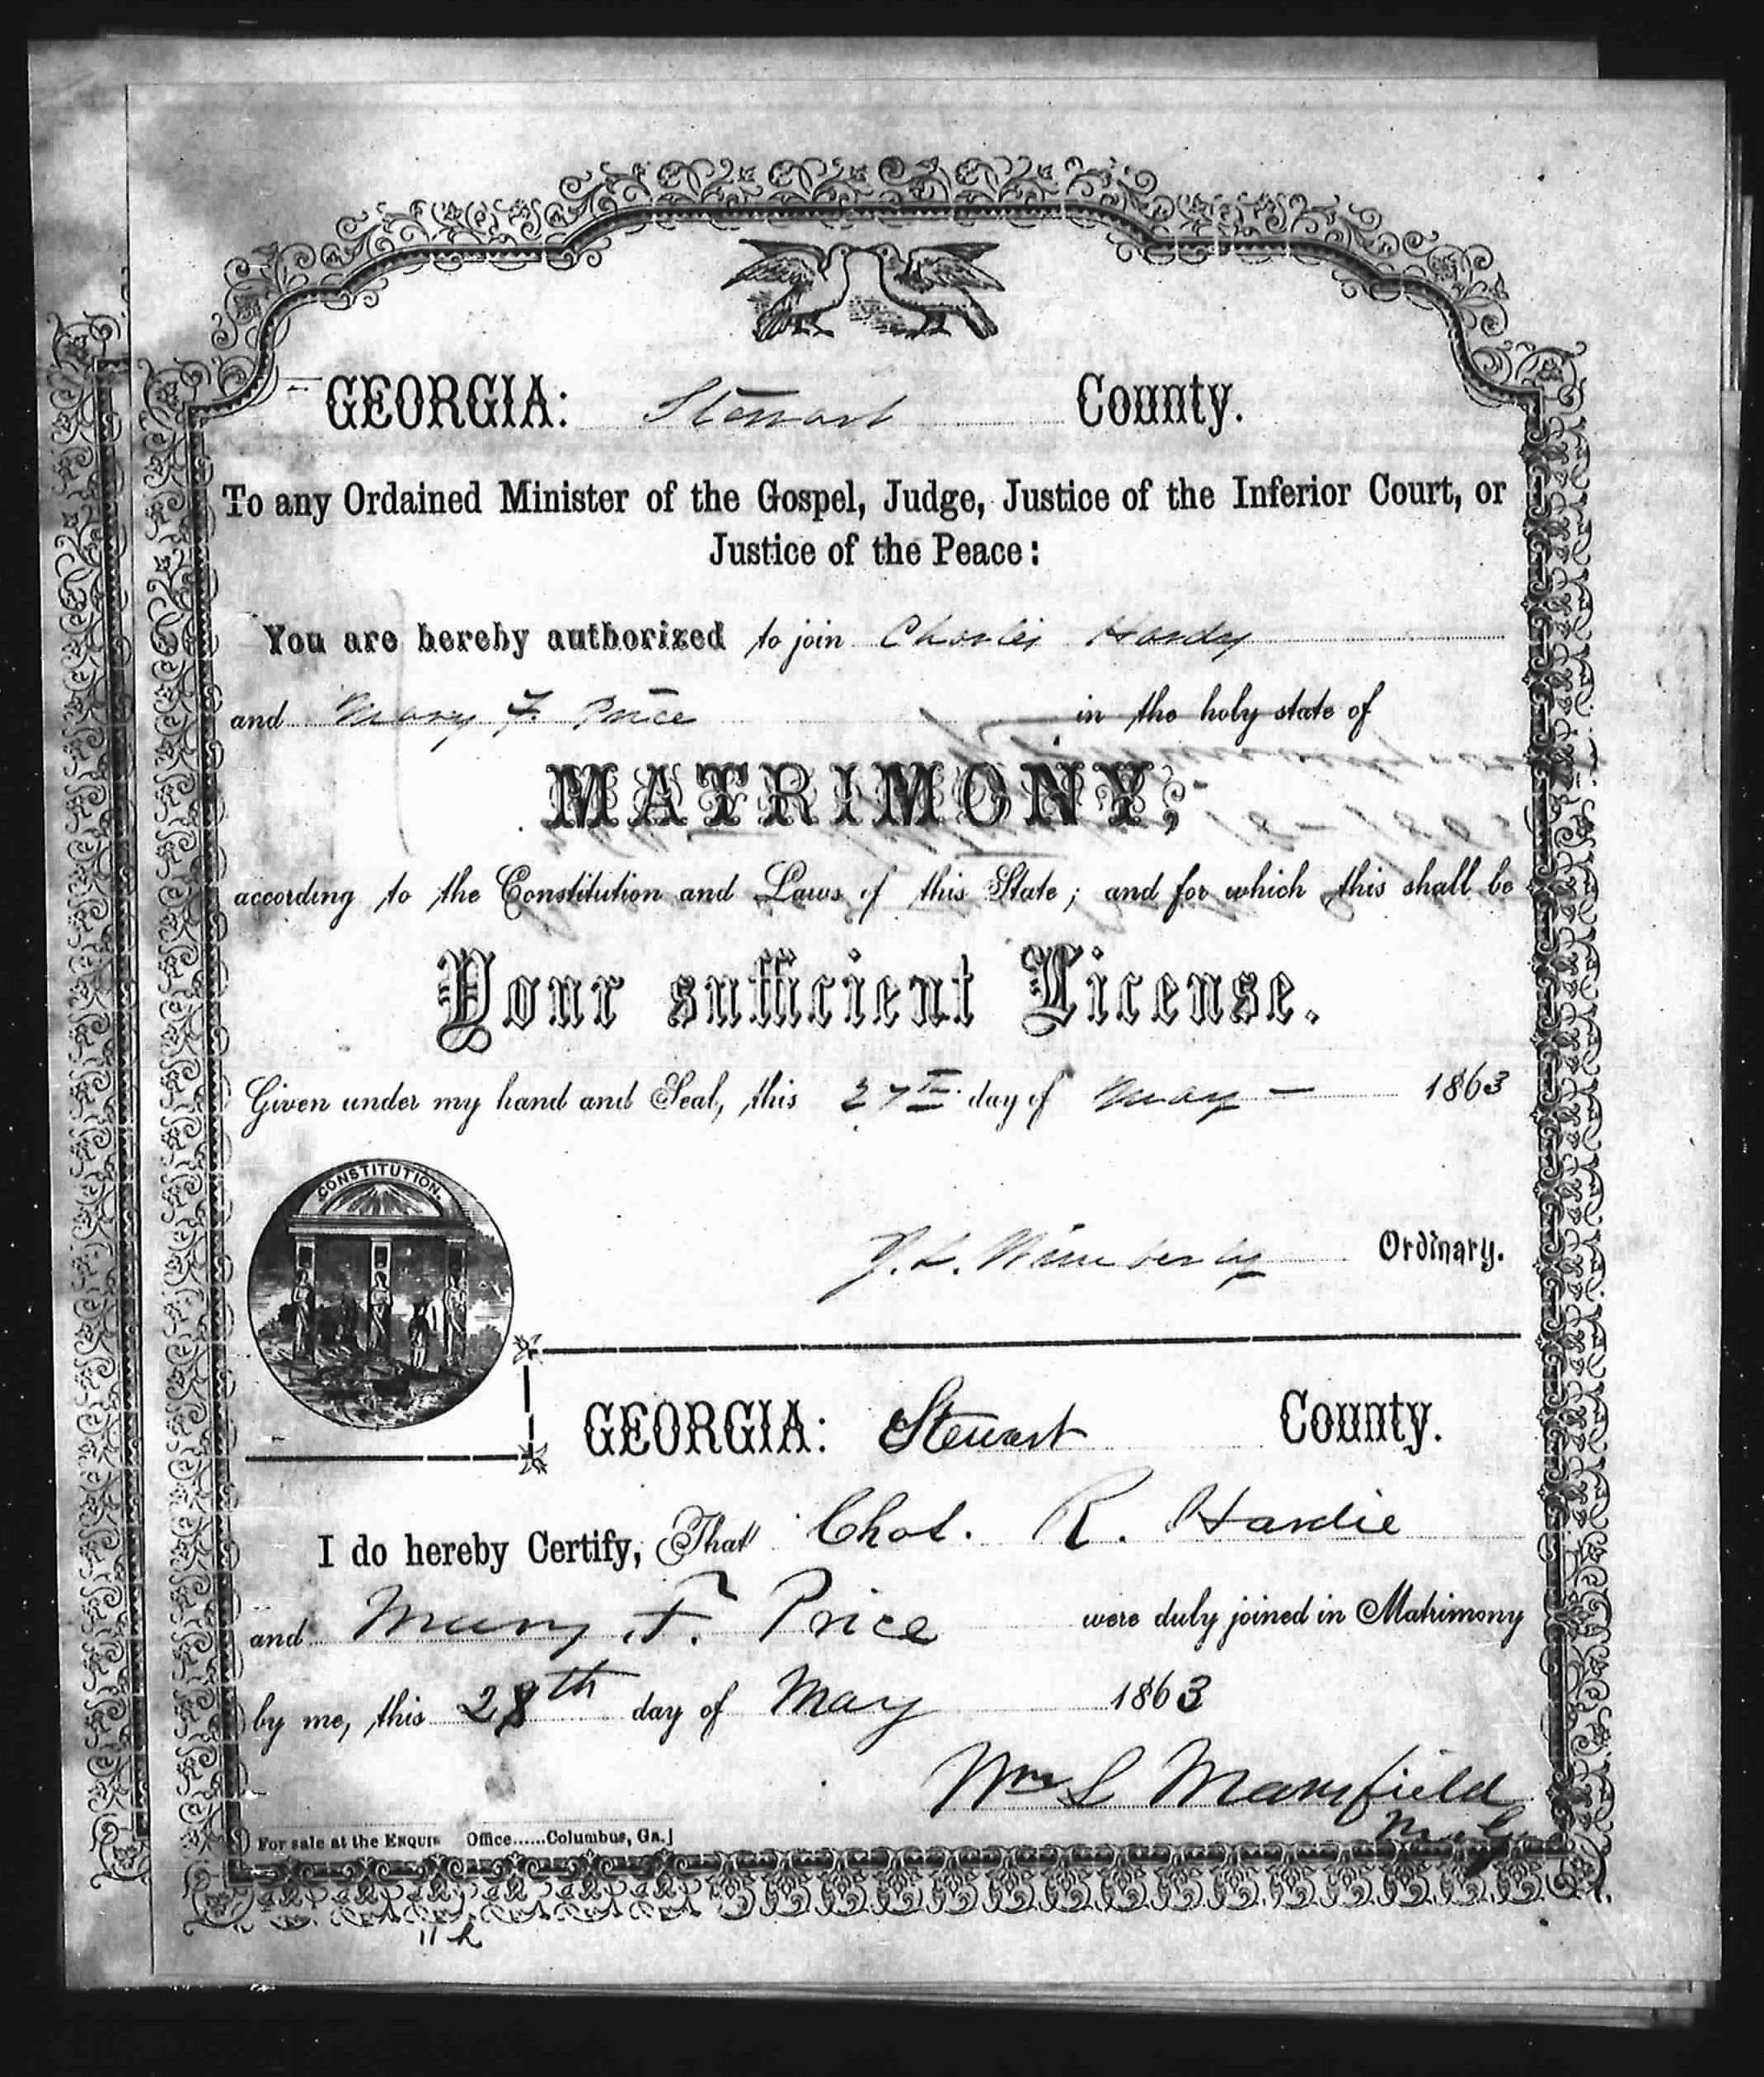 GEORGIA: Stewart County.
To any Ordained Minister of the Gospel, Judge, Justice of the Inferior Court, or
Justice of the Peace:
You are hereby authorized to join Charles Hardy
and Mary F. Price in the holy state of
MATRIMONY;
according to the Constitution and Laws of this State; and for which this shall be
Your sufficient License.
Given under my hand and Seal, this 27th day of May 1863
CONSTITUTION
J. L. Wimberly Ordinary.
GEORGIA: Stewart County.
I do hereby Certify, That Chas. R. Hardie
and Mary F. Price were duly joined in Matrimony
by me, this 28th day of May 1863
Wm S Mansfield
M. G.
For sale at the ENQUIR Office......Columbus, Ga.]